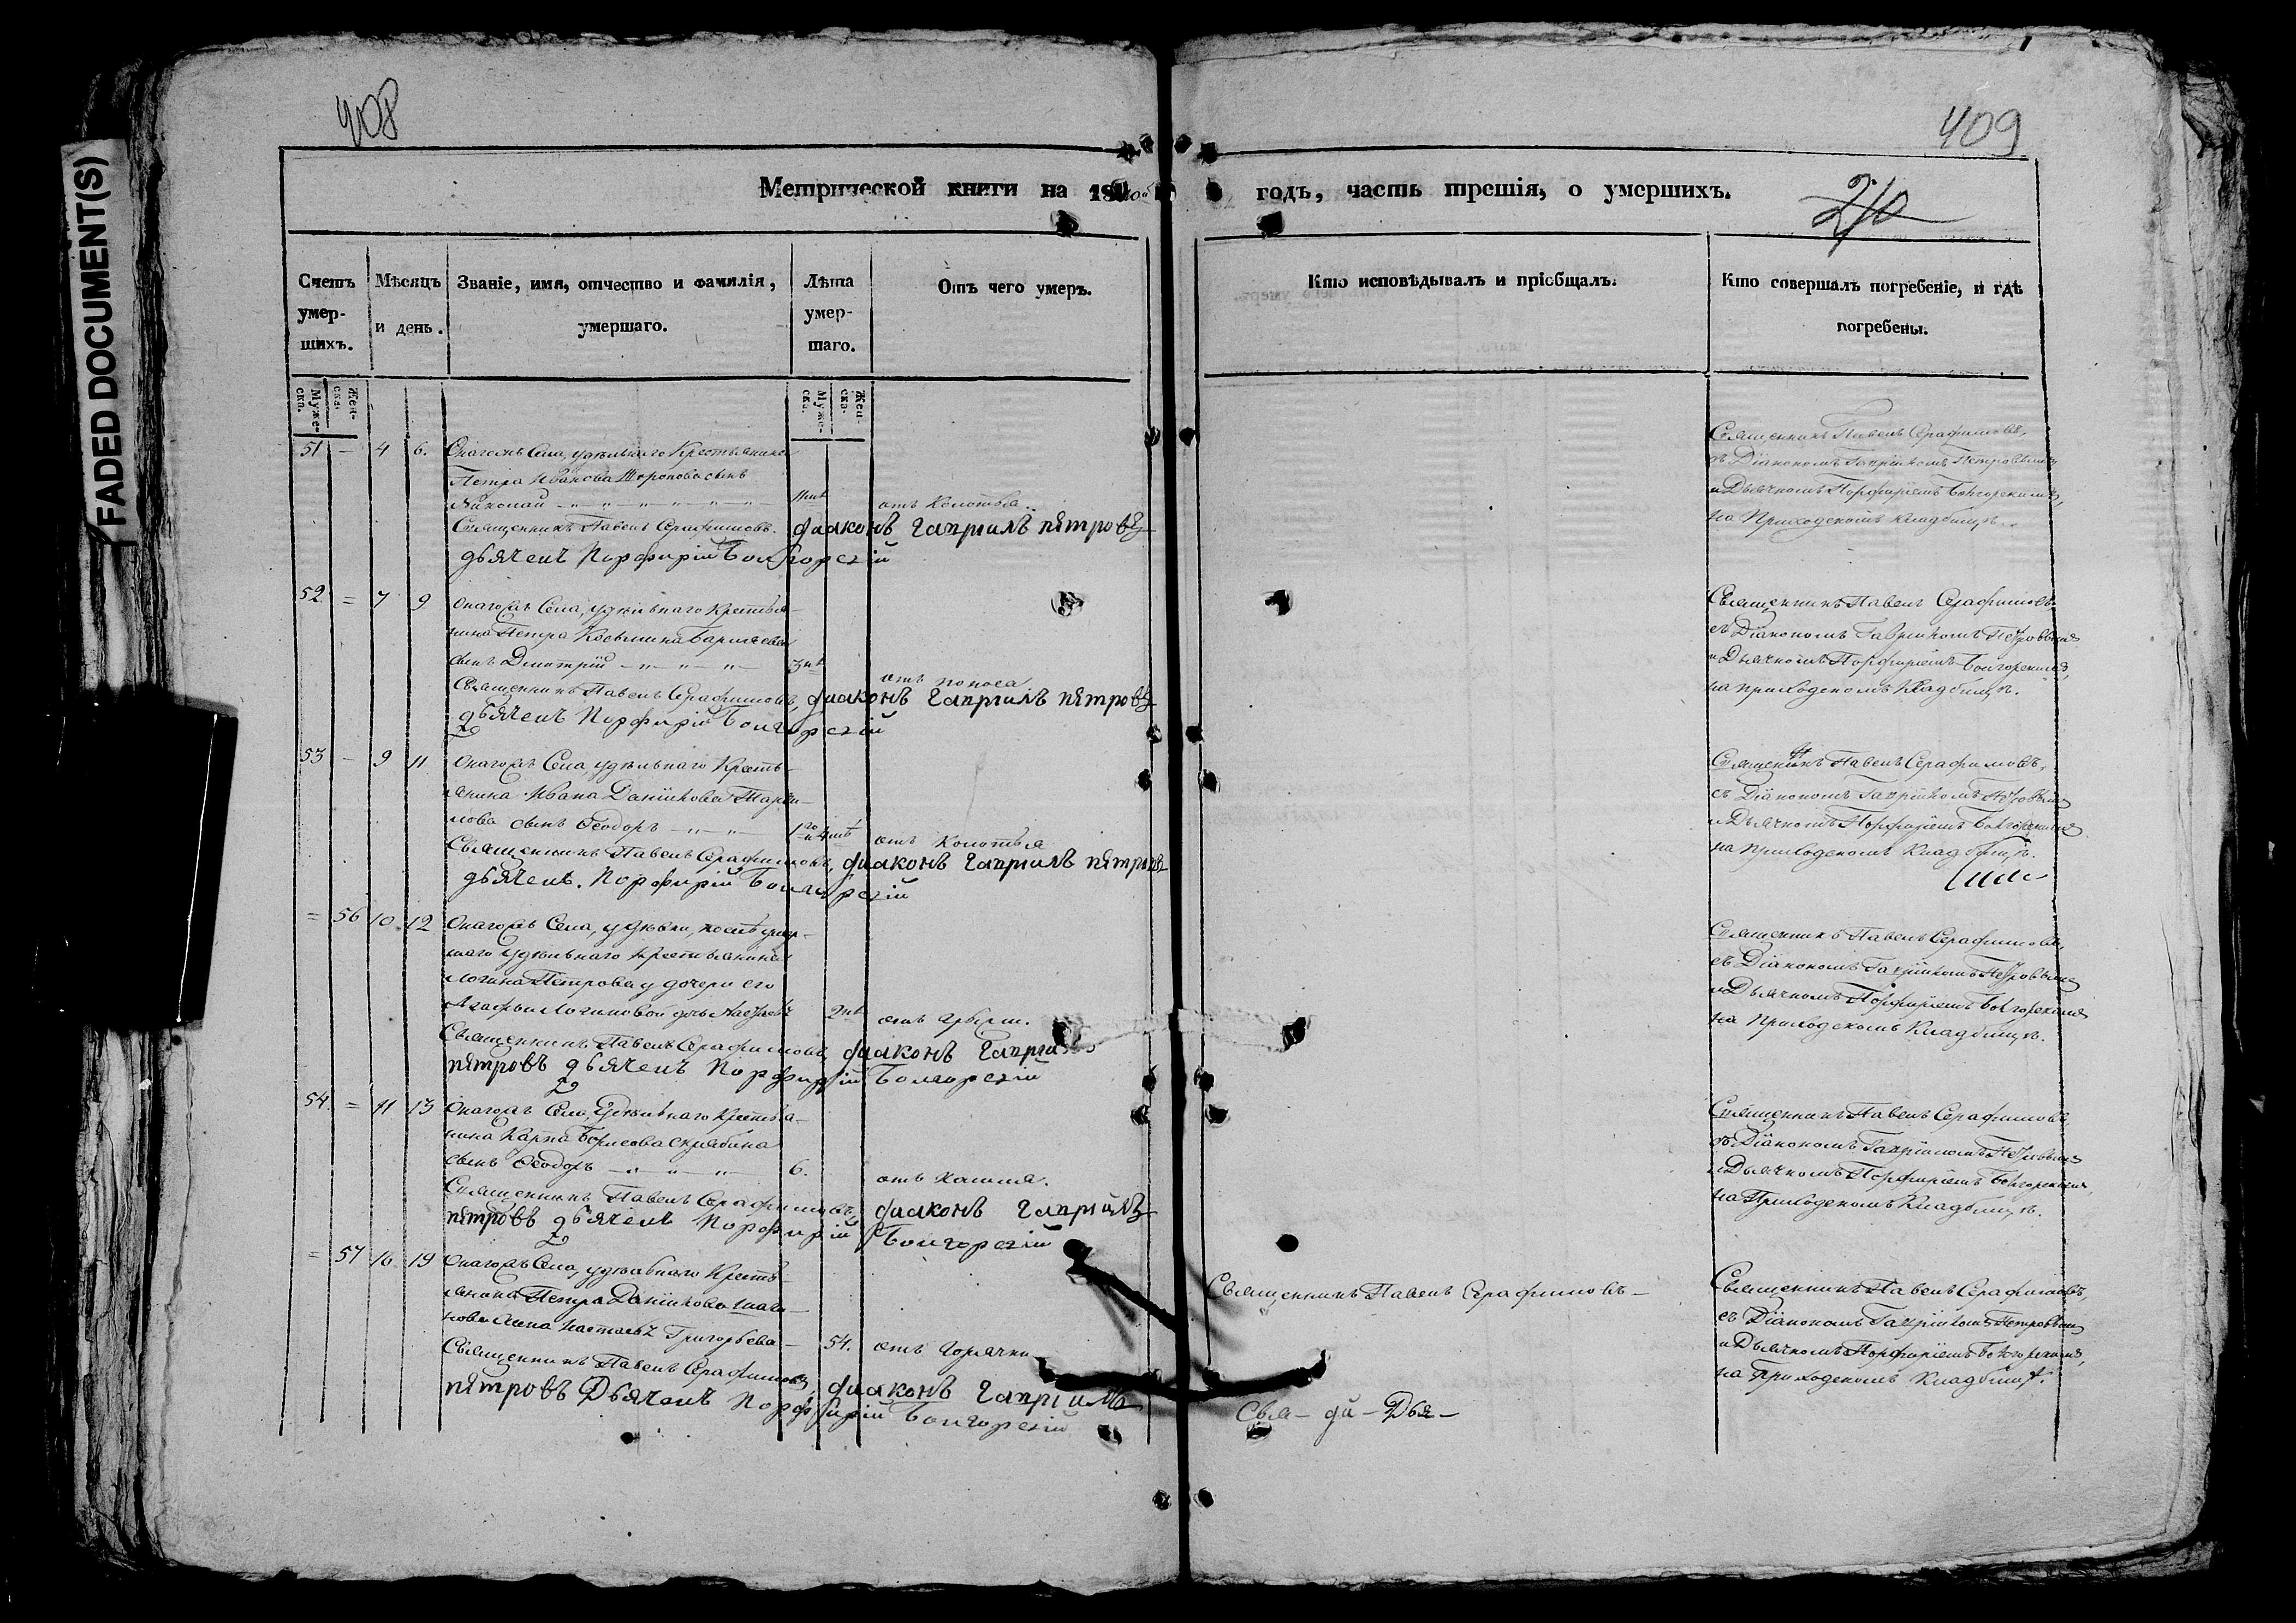 408
409
210
FADED DOCUMENT(S)
Метрической книги на 18
годъ, часть третія, о умершихъ.
Счетъ умер-шихъ.
Мѣсяцъ и день.
Званіе, имя, отчество и фамилія, умершаго.
Лѣта умер-шаго.
Отъ чего умеръ.
Кто исповѣдывалъ и пріобщалъ.
Кто совершалъ погребеніе, и гдѣ погребены.
Муже-ска.
Жен-ска.
Муже-ска.
Жен-ска.
51 – 4 6. Онагожъ Села, удѣльнаго Крестьянина
Петра Иванова сынъ
Николай
отъ Колотья.
Священникъ Павелъ Серафимовъ. диаконъ Гавриилъ петровъ
дьячекъ Порфирій Богорскій
Священникъ Павелъ Серафимовъ,
съ Діакономъ Гавріиломъ Петровымъ
и Дьячкомъ Порфиріемъ
на Приходскомъ кладбищѣ.
52 = 7 9 Онагожъ Села, удѣльнаго Крестья-
нина Петра Косьмина
сынъ Дмитрій
отъ поноса
Священникъ Павелъ Серафимовъ, диаконъ Гавриилъ петровъ
дьячекъ Порфирій
Священникъ Павелъ Серафимовъ
съ Діакономъ Гавріиломъ Петровымъ
и Дьячкомъ Порфиріемъ
на приходскомъ Кладбищѣ.
53 – 9 11 Онагожъ Села, удѣльнаго Кресть-
янина Ивана Данилова
сынъ Ѳеодоръ
отъ Колотья
Священникъ Павелъ Серафимовъ, диаконъ Гавриилъ петровъ
дьячекъ Порфирій
Священникъ Павелъ Серафимовъ,
съ Діакономъ Гавріиломъ Петровымъ
и Дьячкомъ Порфиріемъ
на приходскомъ Кладбищѣ.
= 56 10 12 Онагожъ Села, у
удѣльнаго Крестьянина
Логина Петрова у дочери его
Агафьи Логиновой дочь
отъ
Священникъ Павелъ Серафимовъ, диаконъ Гавриилъ
петровъ дьячекъ Порфирій
Священникъ Павелъ Серафимовъ,
съ Діакономъ Гавріиломъ Петровымъ
и Дьячкомъ Порфиріемъ
на Приходскомъ Кладбищѣ.
54. = 11 13 Онагожъ Села, Удѣльнаго Крестья-
нина Карпа Борисова Скрябина
сынъ Ѳеодоръ 6.
отъ кашля.
Священникъ Павелъ Серафимовъ, диаконъ Гавриилъ
петровъ дьячекъ Порфирій
Священникъ Павелъ Серафимовъ,
съ Діакономъ Гавріиломъ Петровымъ
и Дьячкомъ Порфиріемъ
на Приходскомъ Кладбищѣ.
= 57 16 19 Онагожъ Села, удѣльнаго Кресть-
янина Петра Данилова
жена Григорьева 54. отъ Горячки
Священникъ Павелъ Серафимовъ, диаконъ Гавриилъ
петровъ Дьячекъ Порфирій
Священникъ Павелъ Серафимовъ
Свя – ди – Дья –
Священникъ Павелъ Серафимовъ,
съ Діакономъ Гавріиломъ Петровымъ
и Дьячкомъ Порфиріемъ
на Приходскомъ Кладбищѣ.